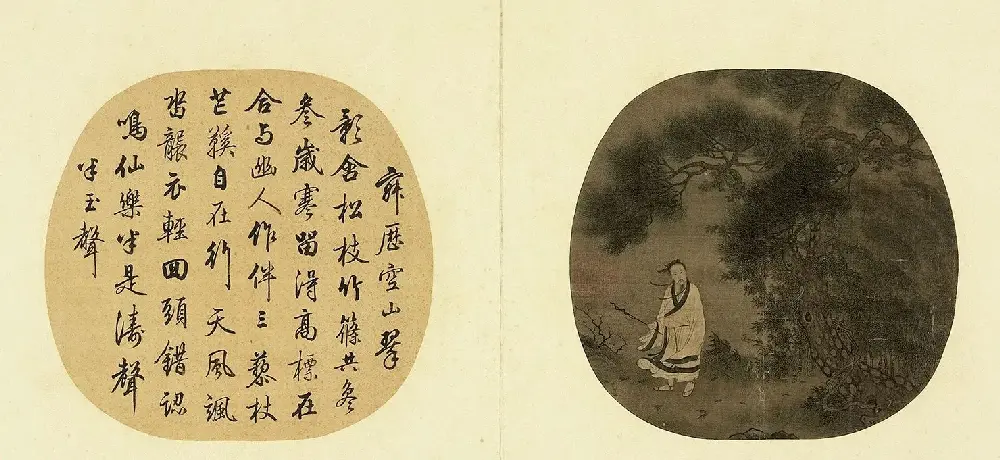 歷空山翠
影含松枝竹篠共
歲寒留得高標在
合与幽人作伴三藜杖
芒鞵自在行天風颯
沓衣輕回頭錯認
鳴仙樂半是濤聲
半玉聲